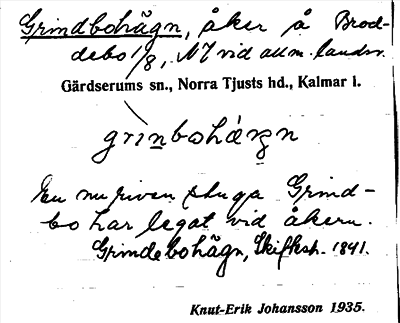 Grindbohägn, åker å Brod-
debo 1/8, NV vid allm. landsv.
Gärdserums sn., Norra Tjusts hd., Kalmar l.
En nu riven stuga Grind-
bo har legat vid åkern.
Grindebohägn, Skifksh. 1841.
Knut-Erik Johansson 1935.